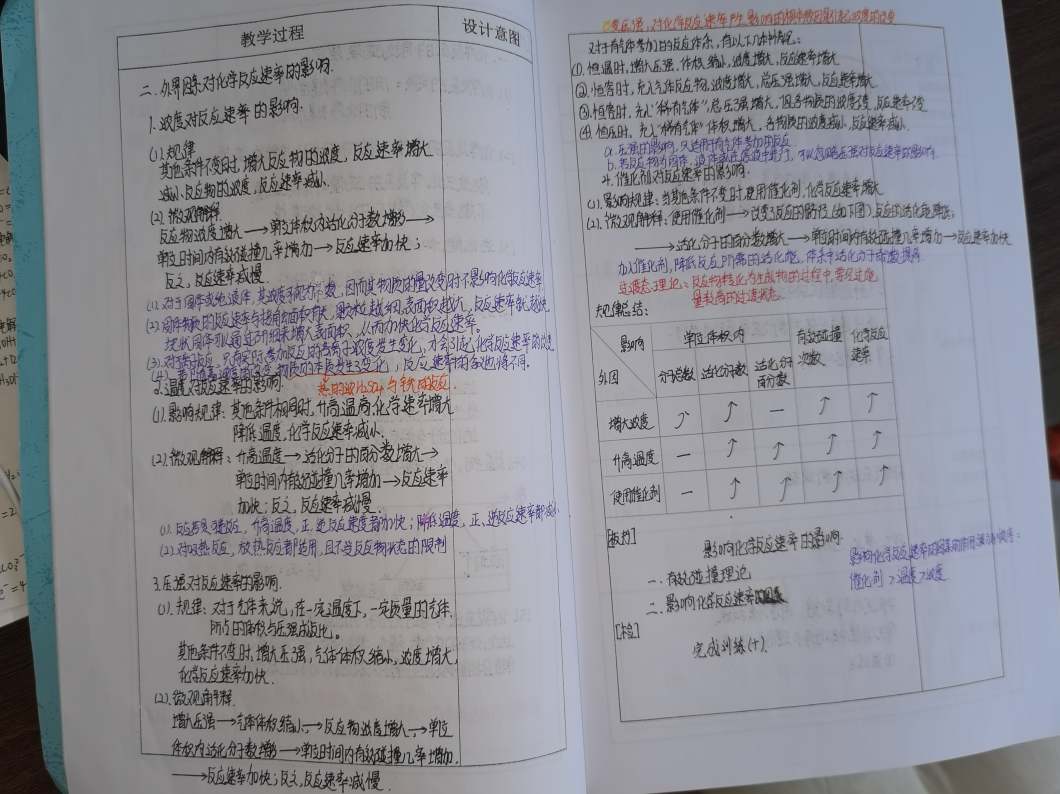 教学过程
设计意图
二、外界因素对化学反应速率的影响.
1.浓度对反应速率的影响.
(1).规律
其他条件不变时,增大反应物的浓度,反应速率增大
减小反应物的浓度,反应速率减小.
(2).微观解释
反应物浓度增大→单位体积内活化分子数增多→
单位时间内有效碰撞几率增加→反应速率加快;
反之,反应速率减慢.
(1).对于固体或纯液体,其浓度可视为常数,因而其物质的量改变时不影响化学反应速率
(2).固体物质的反应速率与接触面积有关,颗粒越细,表面积越大,反应速率就越快
块状固体可以通过研细来增大表面积,从而加快化学反应速率。
(3).对于离子反应,只有实际参加反应的各离子浓度发生变化,才会引起化学反应速率的改变
(4).物质的本质发生了变化,反应速率的改变也将不同.
2.温度对反应速率的影响.
浓H₂SO₄与铁的反应.
(1).影响规律:其他条件相同时,升高温度,化学速率增大
降低温度,化学反应速率减小.
(2).微观解释:升高温度→活化分子的百分数增大→
单位时间内有效碰撞几率增加→反应速率
加快;反之,反应速率减慢.
(1).反应若是可逆反应,升高温度,正、逆反应速度都加快;降低温度,正、逆反应速率都减小
(2).对吸热反应,放热反应都适用,且不受反应物状态的限制
3.压强对反应速率的影响.
(1).规律:对于气体来说,在一定温度下,一定质量的气体,
所占的体积与压强成反比。
其他条件不变时,增大压强,气体体积缩小,浓度增大,
化学反应速率加快.
(2).微观解释.
增大压强→气体体积缩小→反应物浓度增大→单位
体积内活化分子数增多→单位时间内有效碰撞几率增加
→反应速率加快;反之,反应速率减慢.
变压强,对化学反应速率产生影响的根本原因是引起浓度的改变
对于有气体参加的反应体系,有以下几种情况:
①.恒温时,增大压强,体积缩小,浓度增大,反应速率增大
②.恒容时,充入气体反应物,浓度增大,总压强增大,反应速率增大
③.恒容时,充入“稀有气体”,总压强增大,但各物质的浓度不变,反应速率不变
④.恒压时,充入“稀有气体”体积增大,各物质的浓度减小,反应速率减小.
a.压强的影响,只适用于有气体参加的反应.
b.若反应物为固体、液体或在溶液中进行,可以忽略压强对反应速率的影响.
4.催化剂对反应速率的影响.
(1).影响规律:当其他条件不变时,使用催化剂,化学反应速率增大
(2).微观解释:使用催化剂→改变了反应的路径(如下图),反应的活化能降低;
→活化分子的百分数增大→单位时间内有效碰撞几率增加→反应速率加快
加入催化剂,降低反应所需的活化能,体系中活化分子百分数提高
过渡态理论:反应物转化为生成物的过程中要经过能
量较高的过渡状态.
规律总结:
影响
外因
单位体积内
有效碰撞次数
化学反应速率
分子总数 活化分子数 活化分子百分数
增大浓度 ↑ ↑ — ↑ ↑
升高温度 — ↑ ↑ ↑ ↑
使用催化剂 — ↑ ↑ ↑ ↑
[板书]
影响化学反应速率的影响.
一.有效碰撞理论
二.影响化学反应速率的因素
影响化学反应速率的因素的作用强弱顺序:
催化剂>温度>浓度
[检]
完成训练(十).